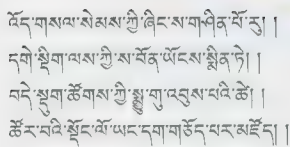 འོད་གསལ་སེམས་ཀྱི་ཞིང་ས་ག་ཤིན་པོ་རུ། །
དགེ་སྡིག་ལས་ཀྱི་ས་བོན་ཡོངས་སྨིན་ཏེ། །
བདེ་སྡུག་ཚོགས་ཀྱི་སྨྱུ་གུ་འབུས་པའི་ཚེ། །
ཚོར་བའི་སྡོང་ལོ་ཡང་དག་གཅོད་པར་མཛོད། །